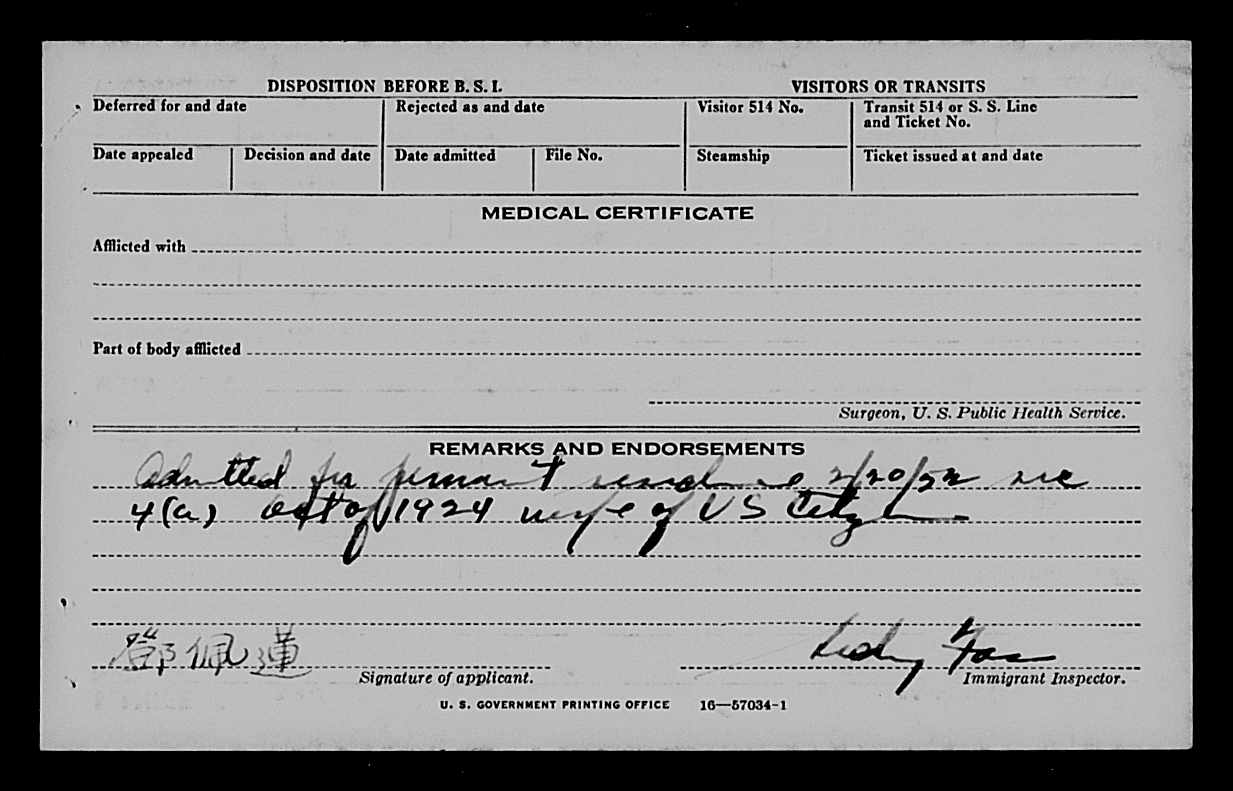 DISPOSITION BEFORE B. S. I.
VISITORS OR TRANSITS
Deferred for and date
Rejected as and date
Visitor 514 No.
Transit 514 or S. S. Line
and Ticket No.
Date appealed
Decision and date
Date admitted
File No.
Steamship
Ticket issued at and date
MEDICAL CERTIFICATE
Afflicted with
Part of body afflicted
Surgeon, U. S. Public Health Service.
REMARKS AND ENDORSEMENTS
Admitted for 2/20/52 sec
4(a) act of 1924 wife of US Citizen
鄧佩蓮
Signature of applicant.
Immigrant Inspector.
U. S. GOVERNMENT PRINTING OFFICE 16—57034-1